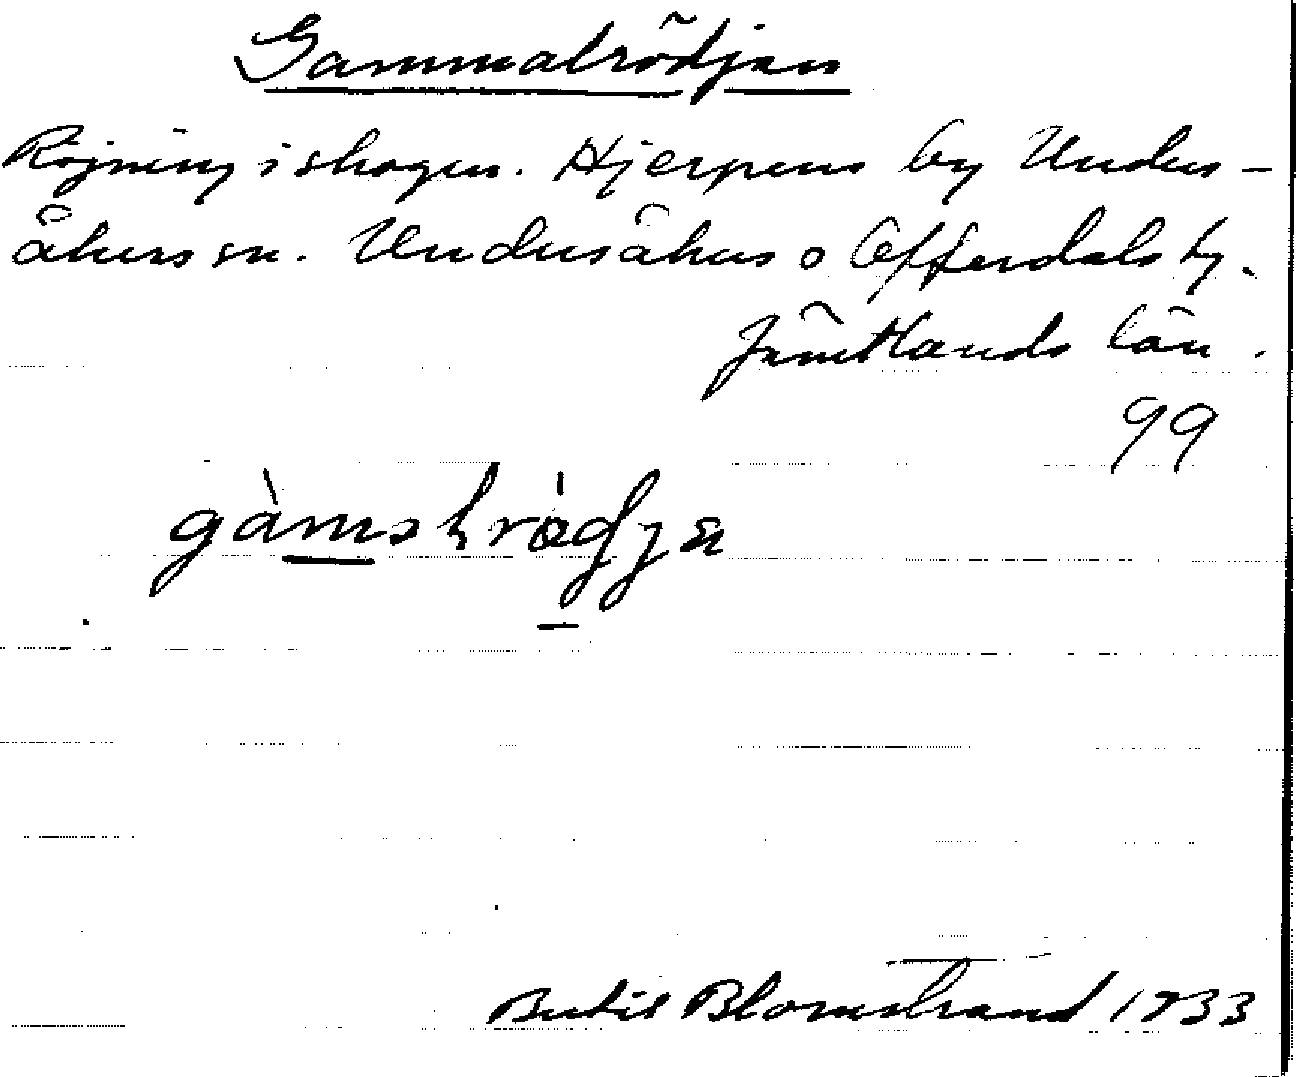 Gammalrödjan
Röjning i skogen. Hjerpens by Unders-
åkers sn. Undersåkers o Offerdals tg.
Jämtlands län.
99
Bertil Blomstrand 1933